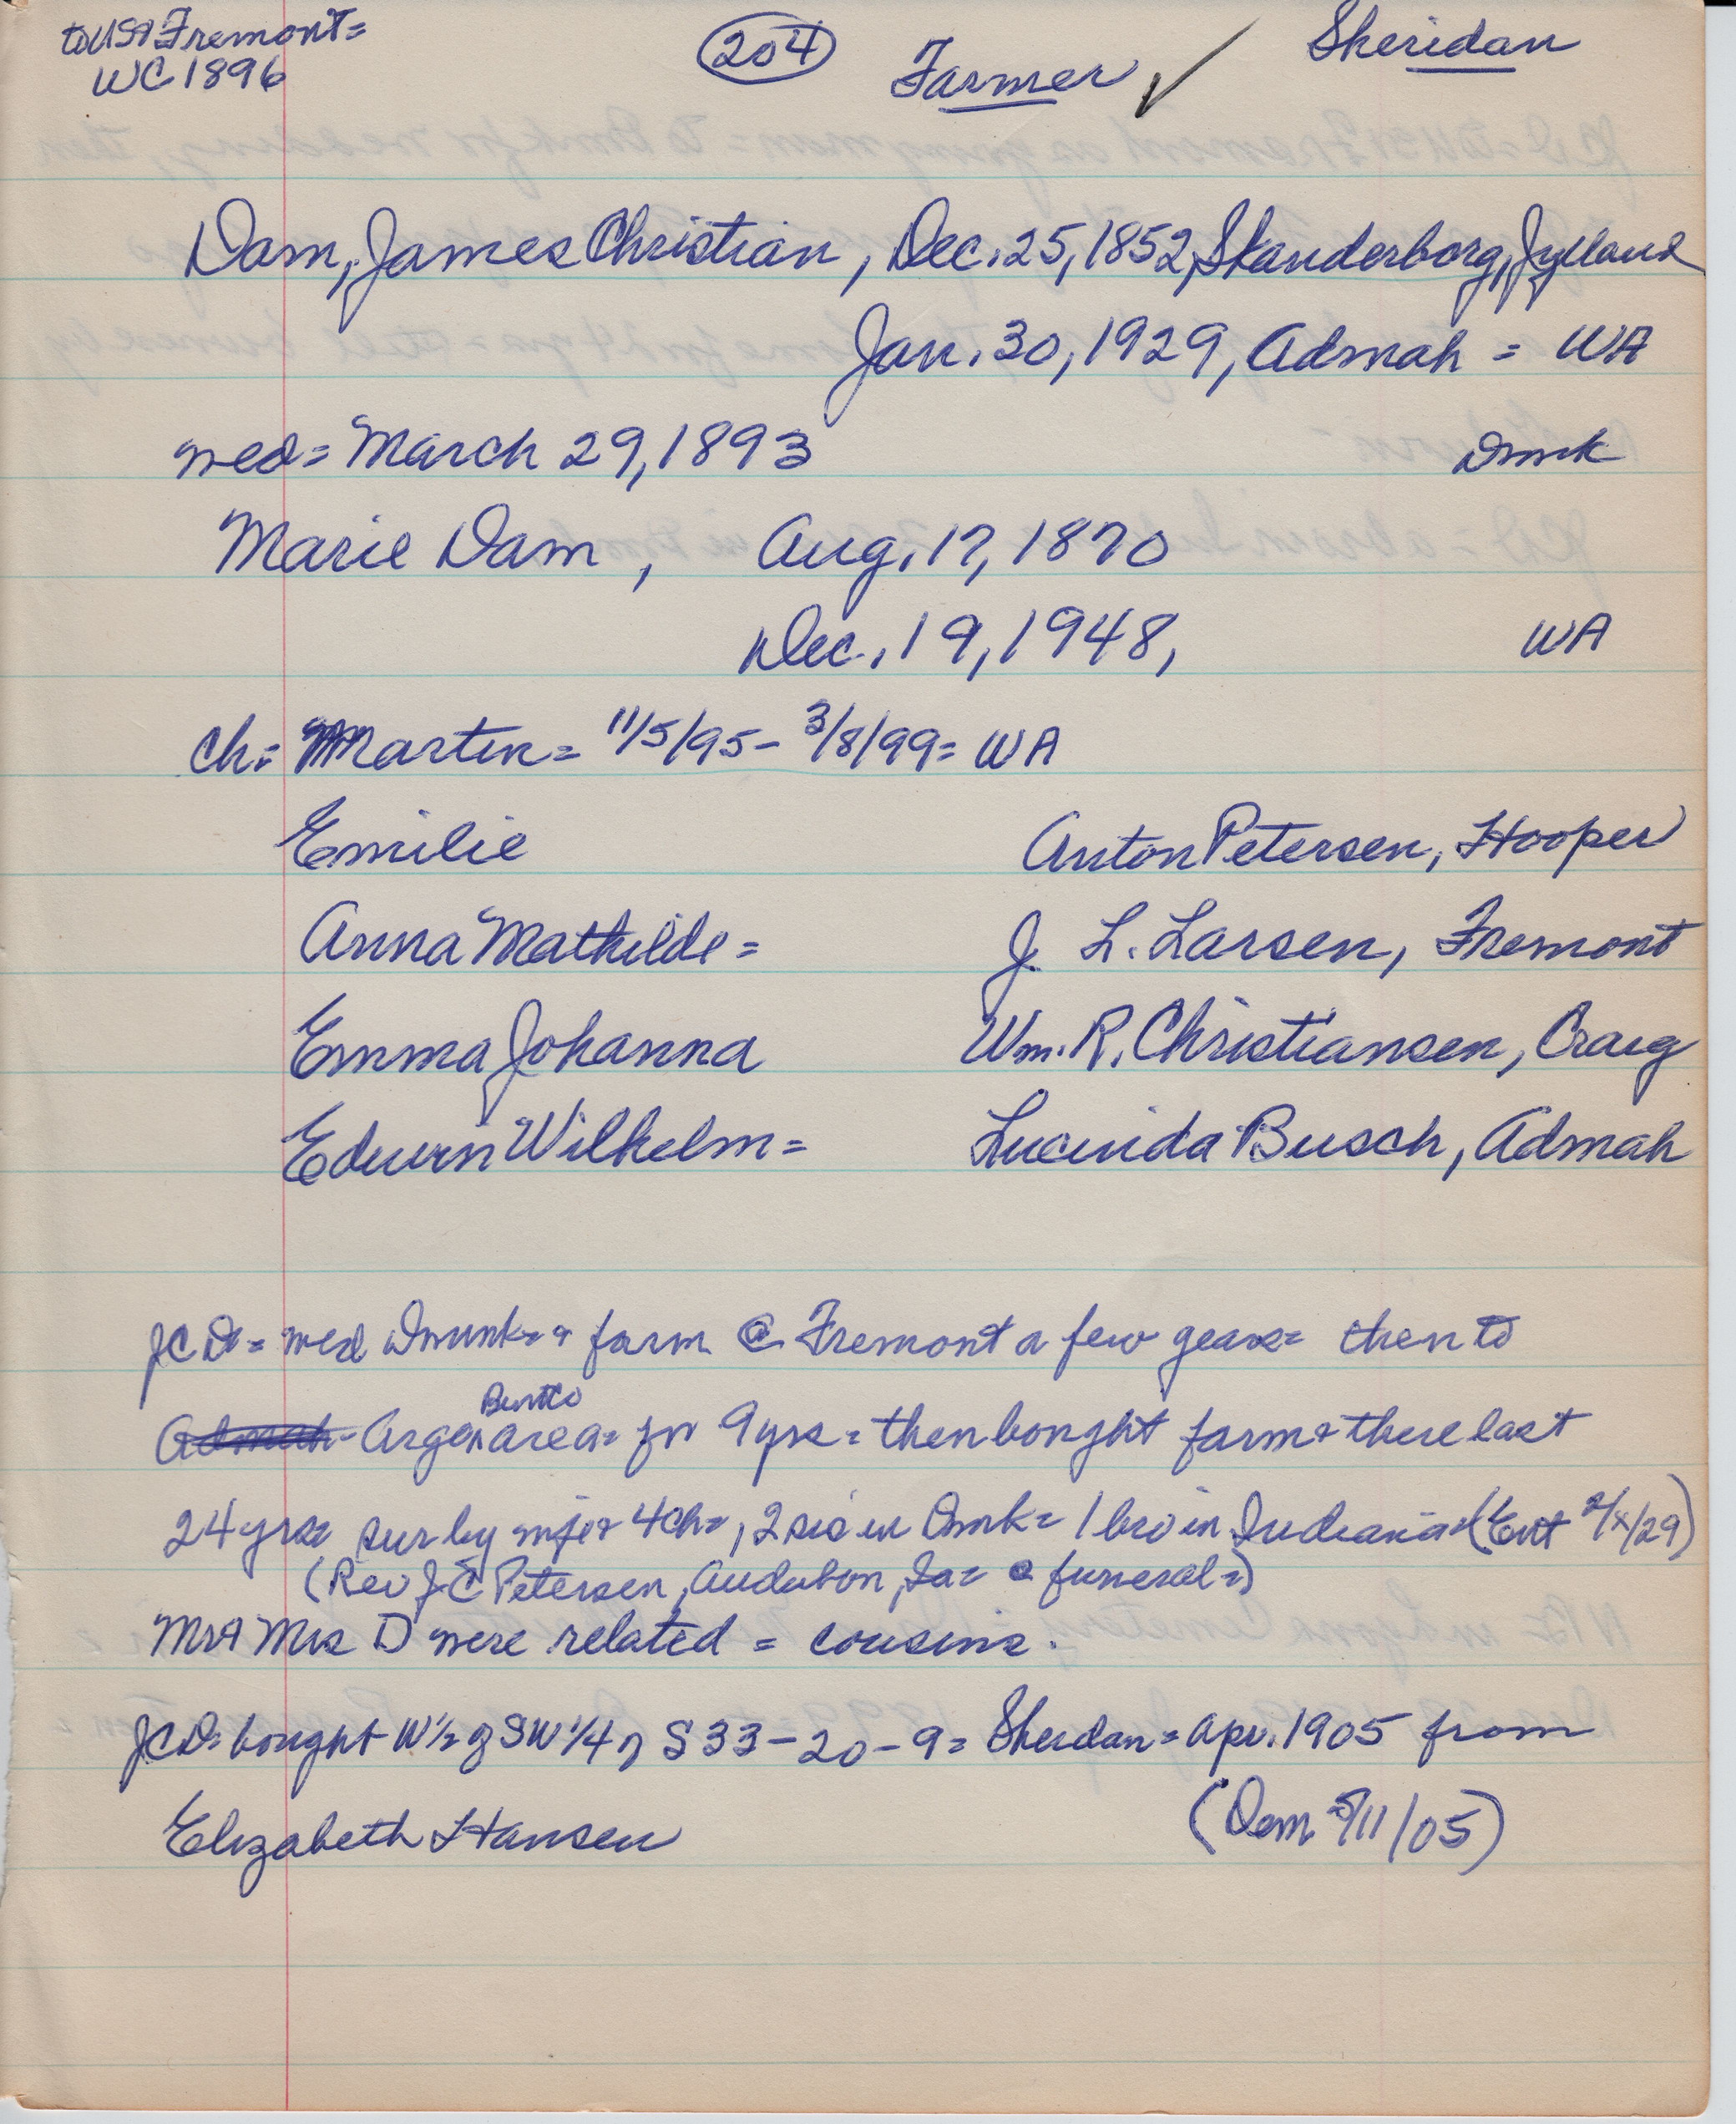 to USA Fremont=
WC 1896
204
Farmer ✓
Sheridan
Dam, James Christian, Dec. 25, 1852, Skanderborg, Jylland
Jan. 30, 1929, Admah = WA
wed= March 29, 1893 Dmk
Marie Dam, Aug. 17, 1870
Dec. 19, 1948, WA
Ch: Martin= 11/5/95- 3/8/99= WA
Emilie Anton Petersen, Hooper
Anna Mathilde= J. L. Larsen, Fremont
Emma Johanna Wm. R. Christiansen, Craig
Edwin Wilhelm= Lucinda Busch, Admah
JCD= wed farm @ Fremont a few years= then to
Admah Argo area= for 9 yrs= then bought farm + there last
Burt Co
24 yrs= sur by wife + 4 ch=, 2 sis in Dmk= 1 bro in Indiana= (Ent 2/8/29)
(Rev J. E Petersen, Audubon, Ia= @ funeral=)
Mr + Mrs D were related = cousins.
JCD= bought W 1/2 of SW 1/4 of S 33-20-9= Sheridan= Apr. 1905 from
Elizabeth Hansen (Dem 5/11/05)